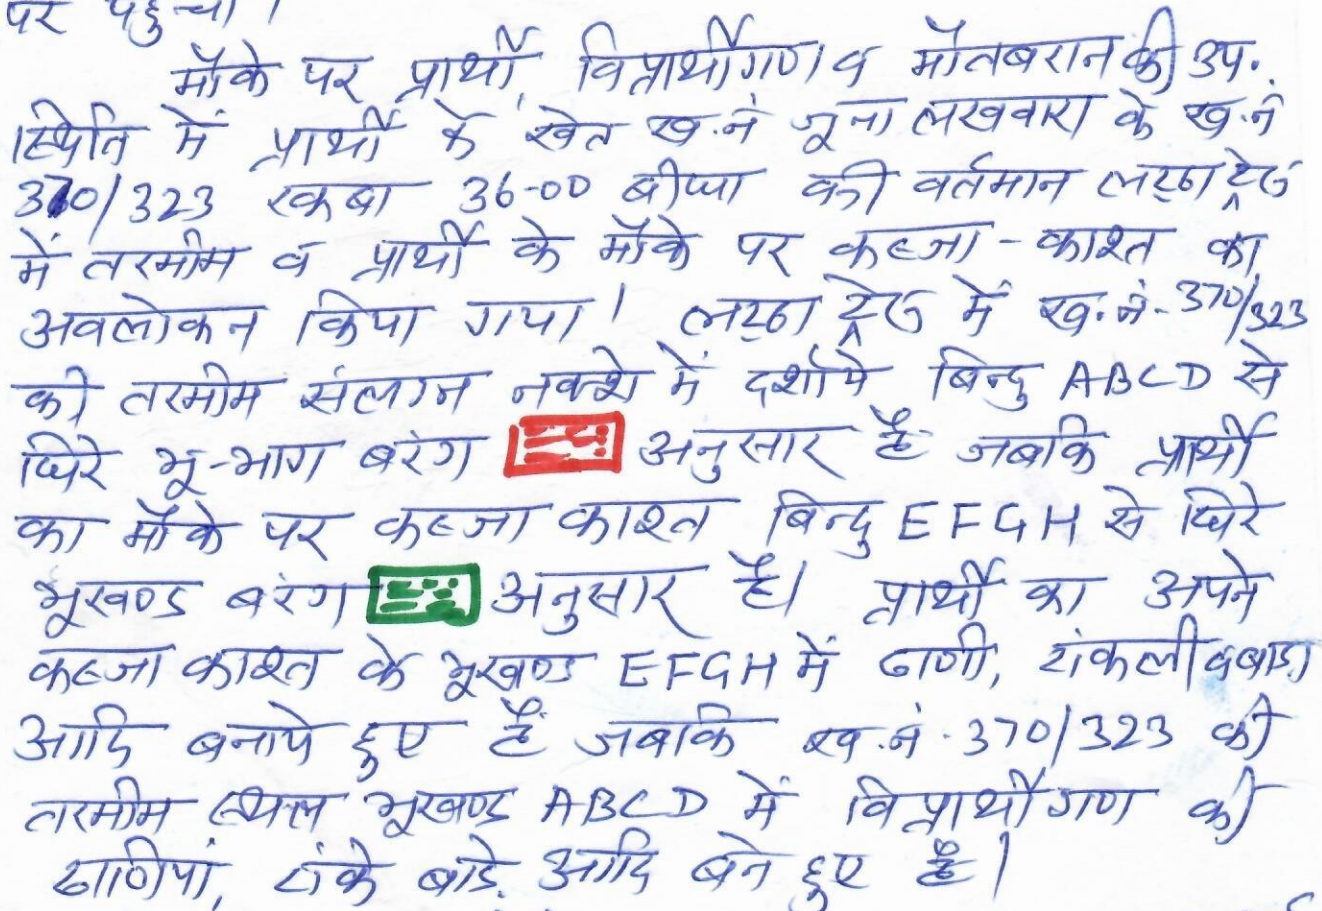 पर पहुंचा।
मौके पर प्रार्थी, विप्रार्थीगण व मौतबरान की उप.
स्थिति में प्रार्थी के खेत ख.नं जूना लखवारा के ख.नं
370/323 रकबा 36-00 बीघा की वर्तमान लट्ठा ट्रेस
में तरमीम व प्रार्थी के मौके पर कब्जा - काश्त का
अवलोकन किया गया। लट्ठा ट्रेस में ख.नं. 370/323
की तरमीम संलग्न नक्शे में दर्शाये बिन्दु ABCD से
घिरे भू-भाग बरंग अनुसार है जबकि प्रार्थी
का मौके पर कब्जा काश्त बिन्दु EFGH से घिरे
भूखण्ड बरंग अनुसार है। प्रार्थी का अपने
कब्जा काश्त के भूखण्ड EFGH में ढाणी, टांकली व बाडा
आदि बनाये हुए हैं जबकि ख.नं. 370/323 की
तरमीम स्थल भूखण्ड ABCD में विप्रार्थीगण की
ढाणियां, टांके बाडे आदि बने हुए है।